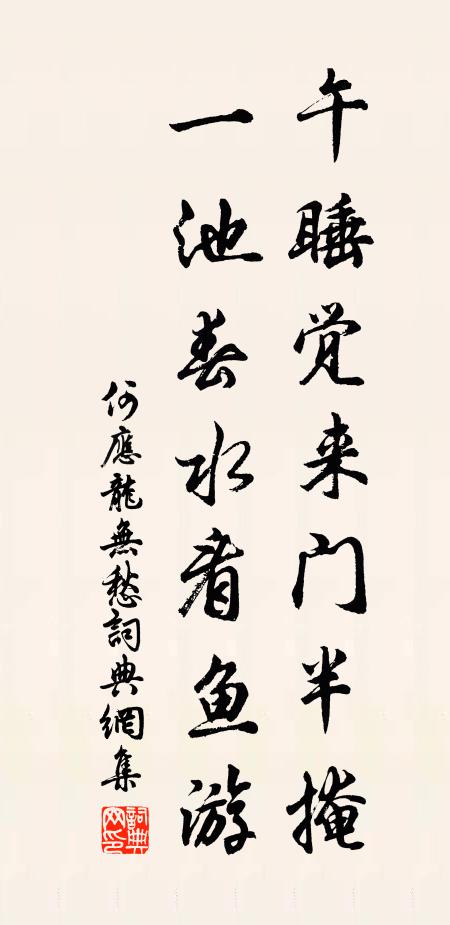 午睡觉来门半掩
一池春水看鱼游
何應龍無愁詞典網集
詞典网印